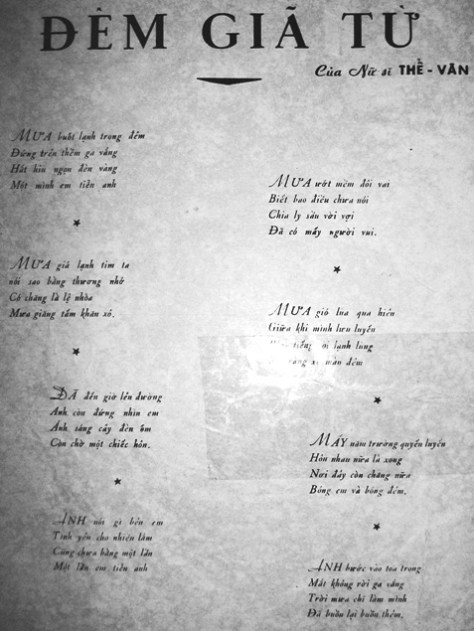 ĐÊM GIÃ TỪ
Của Nữ sĩ THẾ - VÂN
MƯA buốt lạnh trong đêm
Đứng trên thềm ga vắng
Hắt hiu ngọn đèn vàng
Một mình em tiễn anh
MƯA giá lạnh tim ta
nói sao bằng thương nhớ
Có chăng là lệ nhòa
Mưa giăng tấm khăn xô.
ĐÃ đến giờ lên đường
Anh còn đứng nhìn em
Ánh sáng cây đèn ốm
Còn chờ một chiếc hôn.
ANH nói gì bên em
Tình yêu cho nhiều lắm
Cũng chưa bằng một lần
Một lần em tiễn anh
MƯA ướt mềm đôi vai
Biết bao điều chưa nói
Chia ly sầu vời vợi
Đã có mấy người vui.
MƯA gió lùa qua hiên
Giữa khi mình lưu luyến
tiếng lạnh lung
màn đêm
MẤY năm trường quyến luyến
Hôn nhau nữa là xong
Nơi đây còn chăng nữa
Bóng em và bóng đêm.
ANH bước vào toa trong
Mắt không rời ga vắng
Trời mưa chỉ làm mình
Đã buồn lại buồn thêm.